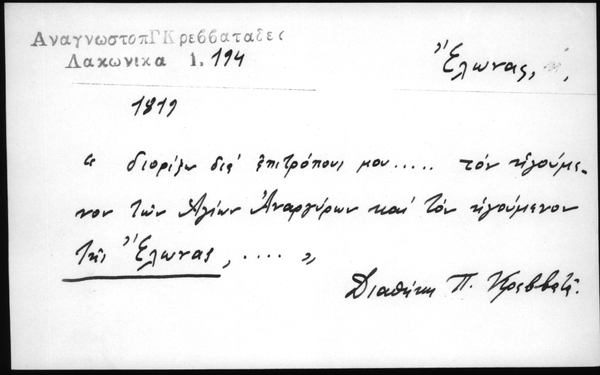 ΑναγνωστοπΓΚρεββαταδες
Λακωνικα 1. 194
Ἕλωνας,
1819
“ διορίζω δι᾽ ἐπιτρόπους μου..... τόν ἡγούμε-
νον τῶν Ἁγίων Ἀναργύρων καί τόν ἡγούμενον
τῆς Ἕλωνας, .... ”
Διαθήκη Π. Κρεββατᾶ.